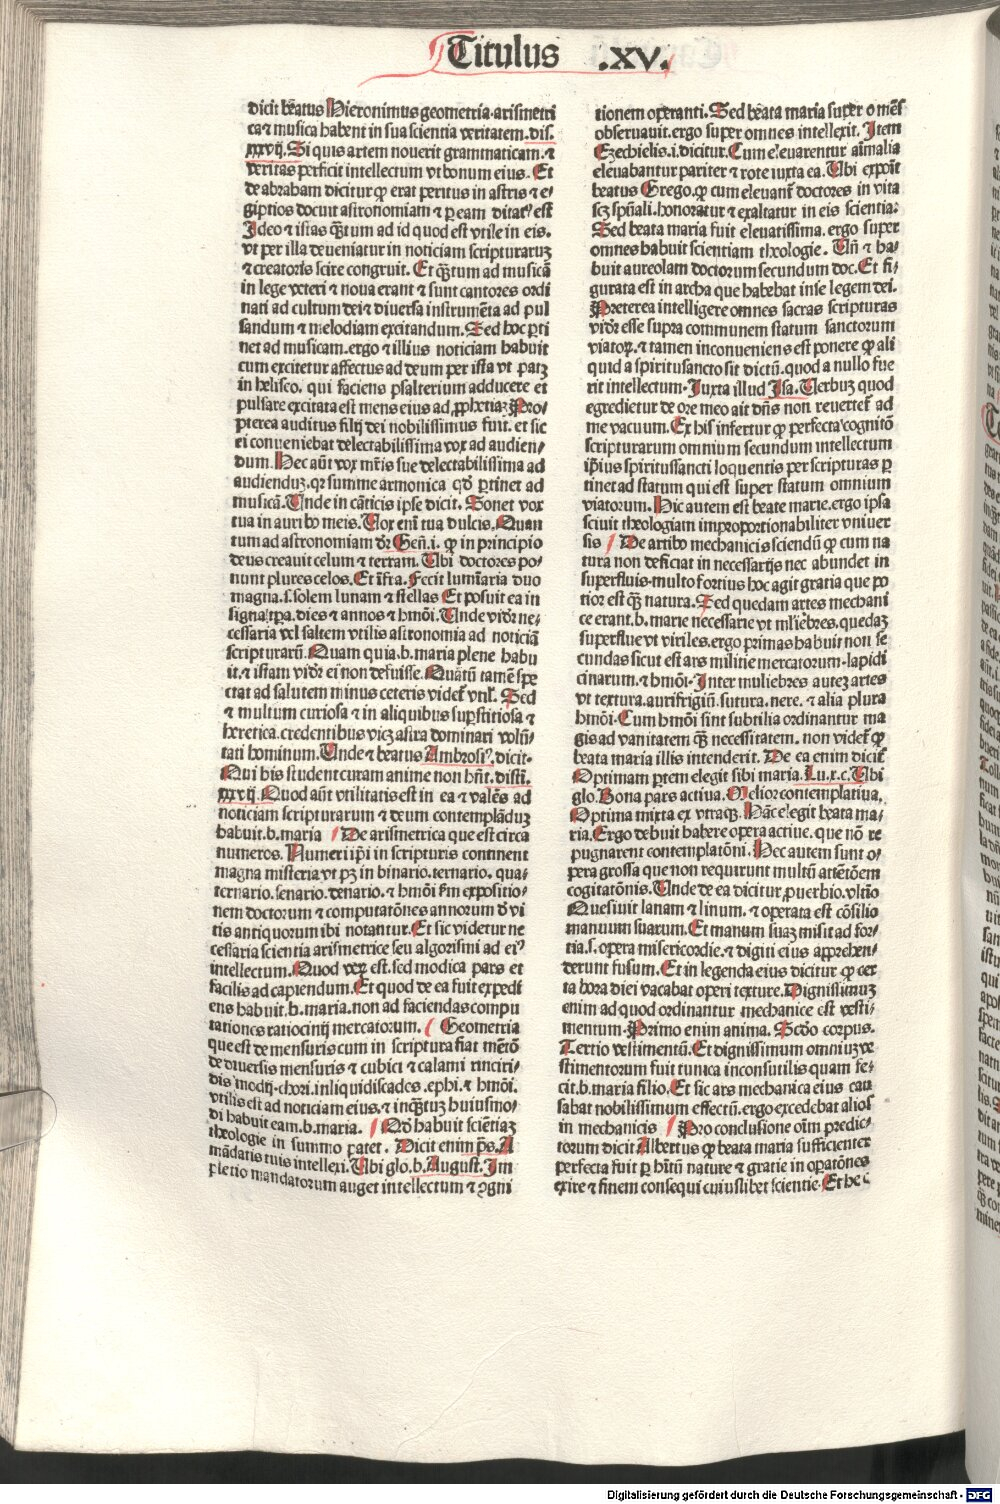 Titulus .XV.
dicit br̃atus Hieronimus geometria.arismetri
ca ⁊ musica habent in sua scientia veritatem.dis.
xxxvij. Si quis artem nouerit grammaticam.⁊
veritas perficit intellectum vt bonum eius. Et
de abraham dicitur ꝙ erat peritus in astris ⁊ e/
giptios docuit astronomiam ⁊ ꝑ eam ditatꝰ est
Ideo ⁊ istas q̃tum ad id quod est vtile in eis.
vt per illa deueniatur in noticiam scripturaruʒ
⁊ creatoris scire congruit. Et q̃tum ad musicã
in lege veteri ⁊ noua erant ⁊ sunt cantores ordi
nati ad cultum dei ⁊ diuersa instrumẽta ad pul
sandum ⁊ melodiam excitandum. Sed hoc ꝑti
net ad musicam.ergo ⁊ illius noticiam habuit
cum excitetur affectus ad deum per ista vt patʒ
in heliseo. qui faciens psalterium adducere et
pulsare excitata est mens eius ad ꝓphetiaʒ Pro/
pterea auditus filij dei nobilissimus fuit. et sic
ei conueniebat delectabilissima vox ad audien/
dum. Hec aũt vox mr̃is sue delectabilissima ad
audienduʒ.qr summe armonica qď ꝑtinet ad
musicã. Unde in cãticis ipse dicit. Sonet vox
tua in auribꝰ meis. Uox enĩ tua dulcis. Quan
tum ad astronomiam dr̃ Geñ.i. ꝙ in principio
deus creauit celum ⁊ terram. Ubi doctores po/
nunt plures celos. Et ĩfra. Fecit lumĩaria duo
magna.s.solem lunam ⁊ stellas Et posuit ea in
signa ⁊ tꝑa. dies ⁊ annos ⁊ hmõi. Unde vidr̃ ne/
cessaria vel saltem vtilis astronomia ad noticiã
scripturarũ. Quam quia.b.maria plene habu
it.⁊ istam vidr̃ ei non defuisse. Quãtũ tamẽ spe
ctat ad salutem minus ceteris videt̃ vtil̃. Sed
⁊ multum curiosa ⁊ in aliquibus suꝑstitiosa ⁊
heretica.credentibus vicʒ astra dominari volũ/
tati hominum. Unde ⁊ beatus Ambrosiꝰ.dicit.
Qui his student curam anime non hñt. distĩ.
xxxvij. Quod aũt vtilitatis est in ea ⁊ valẽs ad
noticiam scripturarum ⁊ deum contemplãduʒ
habuit.b.maria De arismetrica que est circa
numeros. Numeri ip̃i in scripturis continent
magna misteria vt pʒ in binario.ternario. qua/
ternario.senario.denario.⁊ hmõi f̃m expositio/
nem doctorum ⁊ computatõnes annorum ď vi
tis antiquorum ibi notantur. Et sic videtur ne
cessaria scientia arismetrice seu algorismi ad eiꝰ
intellectum. Quod veꝝ est.sed modica pars et
facilis ad capiendum. Et quod de ea fuit expedĩ
ens habuit.b.maria.non ad faciendas compu
tationes ratiocinij mercatorum. Geometria
que est de mensuris cum in scriptura fiat mẽtõ
de diuersis mensuris ⁊ cubici ⁊ calami rinciri/
dis modij.chori.in liquidis cades.ephi.⁊ hmõi.
vtilis est ad noticiam eius.⁊ inq̃tuʒ huiusmo/
di habuit eam.b.maria. Qď habuit sciẽtiaʒ
theologie in summo patet. Dicit enim ps̃. A
mãdatis tuis intellexi. Ubi glo.b.August. Im
pletio mandatorum auget intellectum ⁊ ꝯgni
tionem operanti. Sed bẽata maria super omẽs
obseruauit.ergo super omnes intellexit. Item
Ezechielis.i.dicitur. Cum eleuarentur aĩmalia
eleuabantur pariter ⁊ rote iuxta ea. Ubi expoñt
beatus Grego. ꝙ cum eleuant̃ doctores in vita
scʒ spũali.honoratur ⁊ exaltatur in eis scientia:
Sed beata maria fuit eleuatissima. ergo super
omnes habuit scientiam theologie. Uñ ⁊ ha/
buit aureolam doctorum secundum doc. Et fi/
gurata est in archa que habebat in se legem dei.
Preterea intelligere omnes sacras scripturas
vidr̃ esse supra communem statum sanctorum
viatoꝝ. ⁊ tamen inconueniens est ponere ꝙ ali
quid a spiritusancto sit dictũ.quod a nullo fue
rit intellectum. Iuxta illud Isa. Uerbuʒ quod
egredietur de ore meo ait dñs non reuertet̃ ad
me vacuum. Ex his infertur ꝙ perfecta cognitõ
scripturarum omnium secundum intellectum
ip̃ius spiritussancti loquentis per scripturas ꝑ
tinet ad statum qui est super statum omnium
viatorum. Hic autem est beate marie.ergo ipsa
sciuit theologiam improportionabiliter vniuer
sis De artibꝰ mechanicis sciendũ ꝙ cum na
tura non deficiat in necessarijs nec abundet in
superfluis.multo fortius hoc agit gratia que po
tior est q̃ natura. Sed quedam artes mechani
ce erant.b.marie necessarie vt mlĩebres. quedaʒ
superflue vt viriles. ergo primas habuit non se
cundas sicut est ars militie mercatorum.lapidi
cinarum.⁊ hmõi. Inter muliebres auteʒ artes
vt textura.aurifrigiũ.sutura.nere. ⁊ alia plura
hmõi. Cum hmõi sint subtilia ordinantur ma
gis ad vanitatem q̃ necessitatem. non videt̃ ꝙ
beata maria illis intenderit. De ea enim dicit̃
Optimam ꝑtem elegit sibi maria. Lu.x.c. Ubi
glo. Bona pars actiua. Melior contemplatiua.
Optima mixta ex vtraqꝫ. Hãc elegit beata ma/
ria. Ergo debuit habere opera actiue. que nõ re
pugnarent contemplatõni. Hec autem sunt o/
pera grossa que non requirunt multũ attẽtõem
cogitatõnis. Unde de ea dicitur ꝓuerbio. vltĩo
Quesiuit lanam ⁊ linum. ⁊ operata est cõsilio
manuum suarum. Et manum suaʒ misit ad for/
tia.s. opera misericordie.⁊ digiti eius apprehen/
derunt fusum. Et in legenda eius dicitur ꝙ cer
ta hora diei vacabat operi texture. Dignissimuʒ
enim ad quod ordinantur mechanice est vesti/
mentum. Primo enim anima. Scďo corpus.
Tertio vestimentũ. Et dignissimum omniuʒ ve
stimentorum fuit tunica inconsutilis quam fe/
cit.b.maria filio. Et sic ars mechanica eius cau
sabat nobilissimum effectũ.ergo excedebat alios
in mechanicis Pro conclusione oĩm predic/
torum dicit Albertus ꝙ beata maria sufficienter
perfecta fuit ꝑ hĩtũ nature ⁊ gratie in oꝑatõnes
exire ⁊ finem consequi cuiuslibet scientie. Et hec
Digitalisierung gefördert durch die Deutsche Forschungsgemeinschaft - DFG